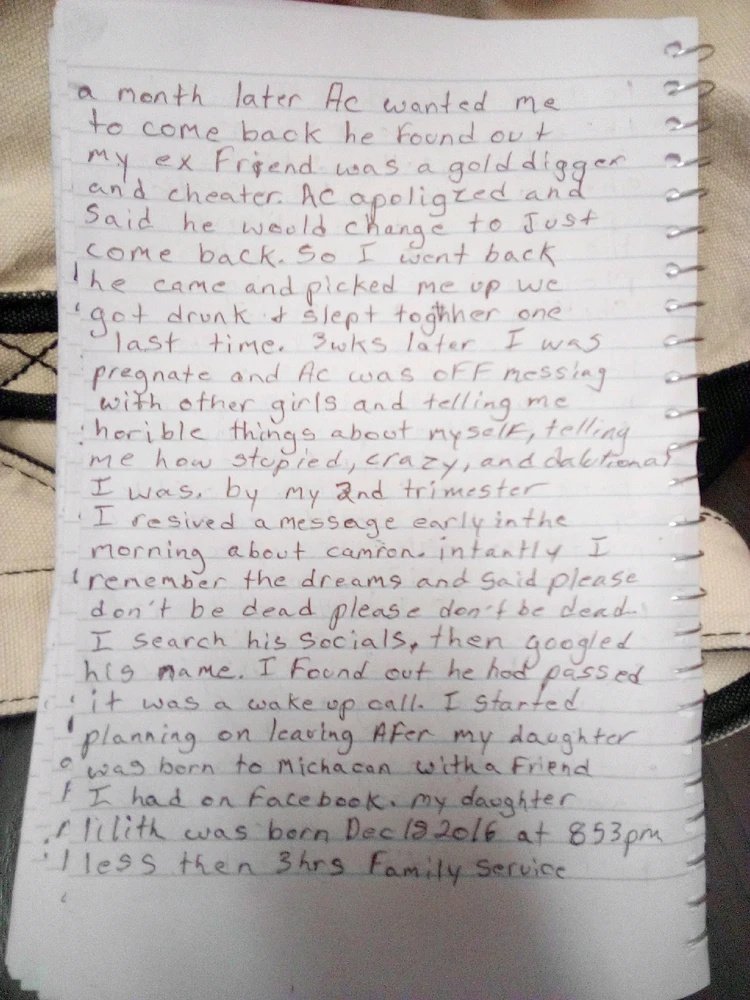 a month later Ac wanted me
to come back he found out
my ex Friend was a gold digger
and cheater. AC apoligzed and
Said he would change to Just
come back. So I went back
he came and picked me up we
got drunk & slept toghher one
last time. 3wks later I was
pregnate and Ac was oFF messing
with other girls and telling me
horible things about myself, telling
me how stupied, crazy, and
I was. by my 2nd trimester
I resived a message early in the
morning about camron. intantly I
remember the dreams and said please
don't be dead please don't be dead.
I search his Socials, then googled
his name. I Found out he had passed
it was a wake up call. I started
planning on leaving AFer my daughter
was born to Michacan with a Friend
I had on Facebook. my daughter
lilith was born Dec 2016 at 853pm
less then 3hrs Family Service